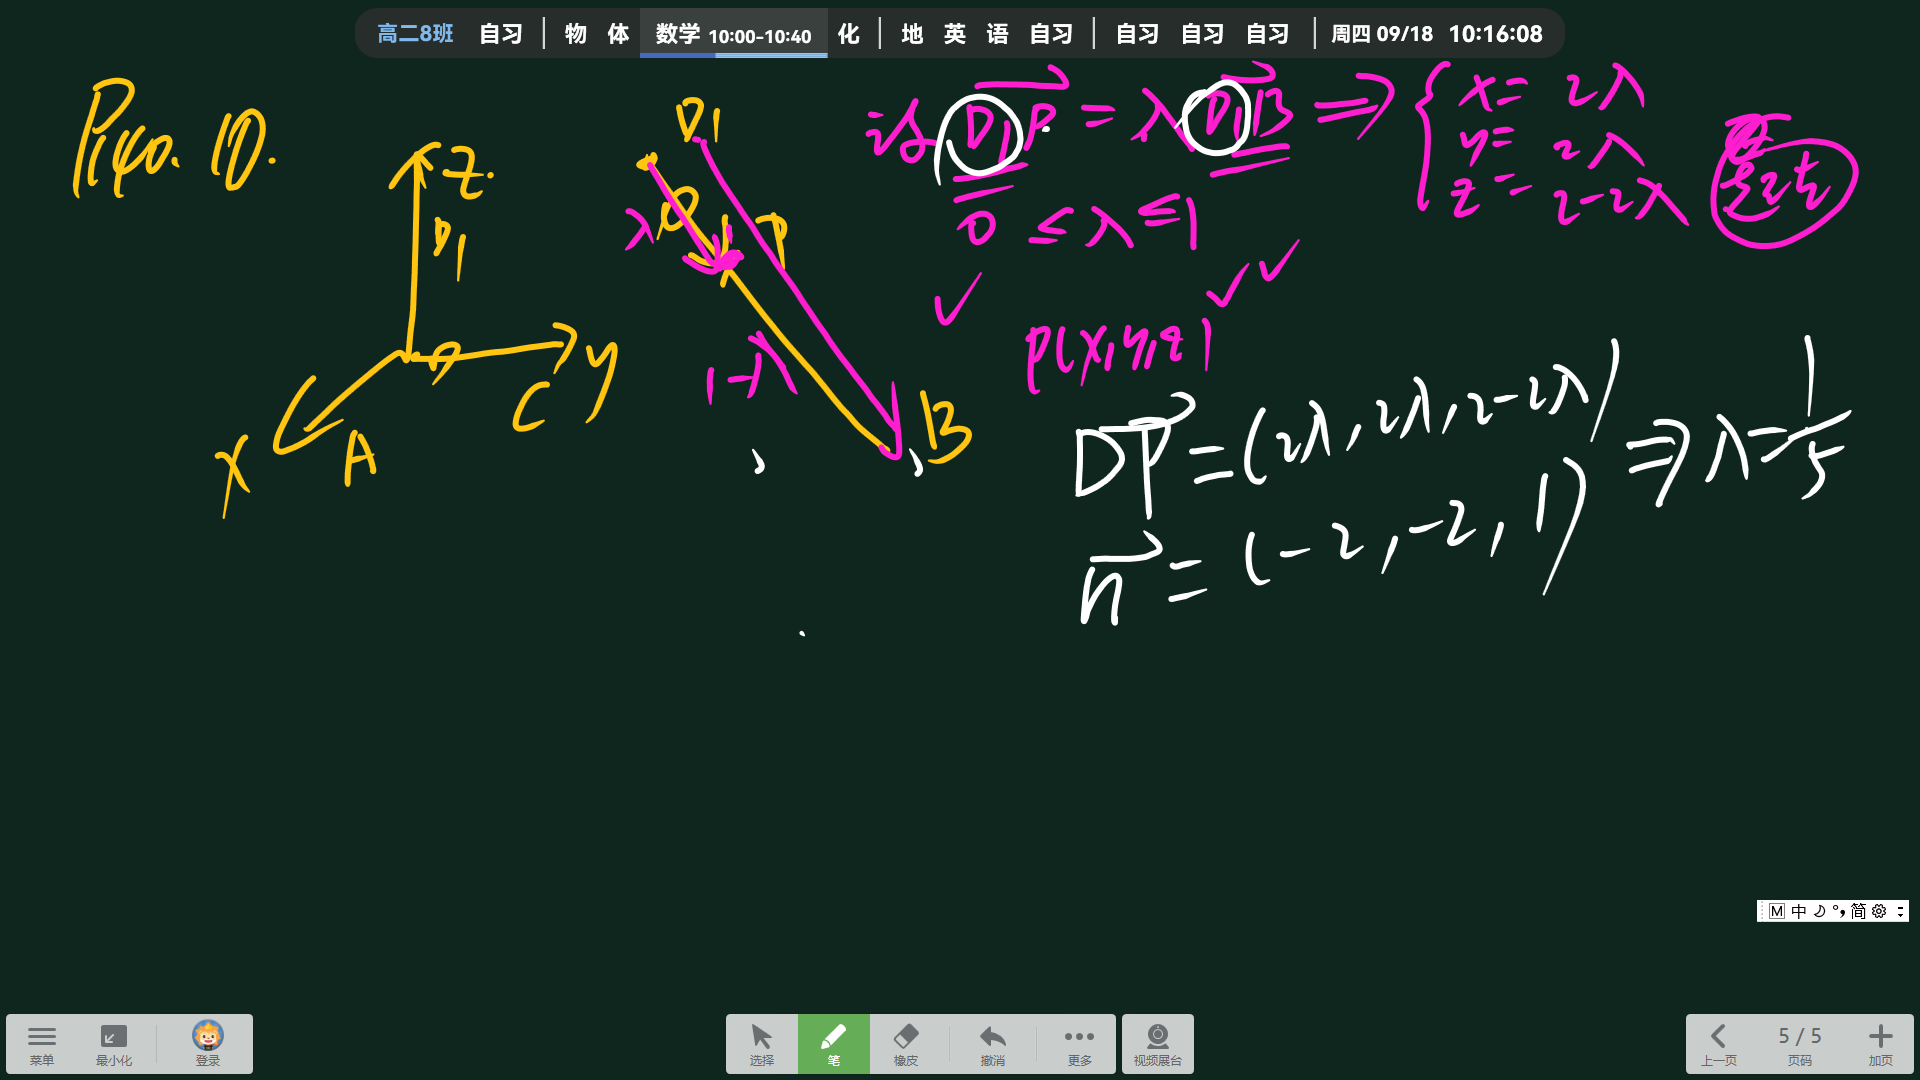 高二8班 自习 | 物 体 数学 10:00-10:40 化 | 地 英 语 自习 | 自习 自习 自习 | 周四 09/18 10:16:08
P140. 10.
Z
D1
D
y
C
x
A
D1
P
λ
1-λ
B
设 D1P = λ D1B ⇒ { x = 2λ
y = 2λ
z = 2-2λ
0 ≤ λ ≤ 1
P(x,y,z)
DP = (2λ, 2λ, 2-2λ) ⇒ λ = 1/5
n = (-2, -2, 1)
M 中 简
菜单 最小化 登录 选择 笔 橡皮 撤消 更多 视频展台 上一页 5 / 5 页码 加页